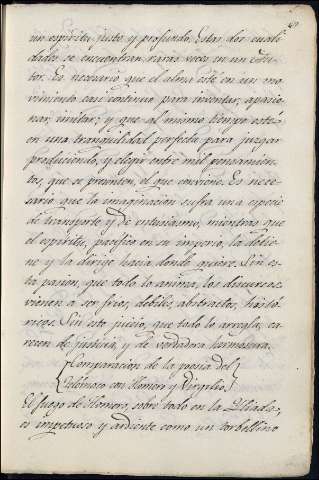 un espiritu justo y profundo. Estas dos cuali
dades se encuentran raras veces en un escri
tor. Es necesario que el alma esté en un mo
vimiento casi continuo para inventar, apasio
nar, imitar; y que al mismo tiempo esté
en una tranquilidad perfecta, para juzgar
produciendo, y elegir entre mil pensamien
tos, que se presenten, el que conviene. Es nece
sario que la imaginacion sufra una especie
de transporte y de entusiasmo, mientras que
el espiritu, pacifico en su imperio, la detie
ne y la dirige hacia donde quiere. Sin es
ta pasion, que todo lo anima, los discursos
vienen a ser frios, debiles, abstractos, histo
ricos. Sin este juicio, que todo lo arregla, ca
recen de justicia, y de verdadera hermosura.
Comparacion de la poesia del
Telémaco con Homero y Virgilio.
El fuego de Homero, sobre todo en la Illiada,
es impetuoso y ardiente como un torbellino